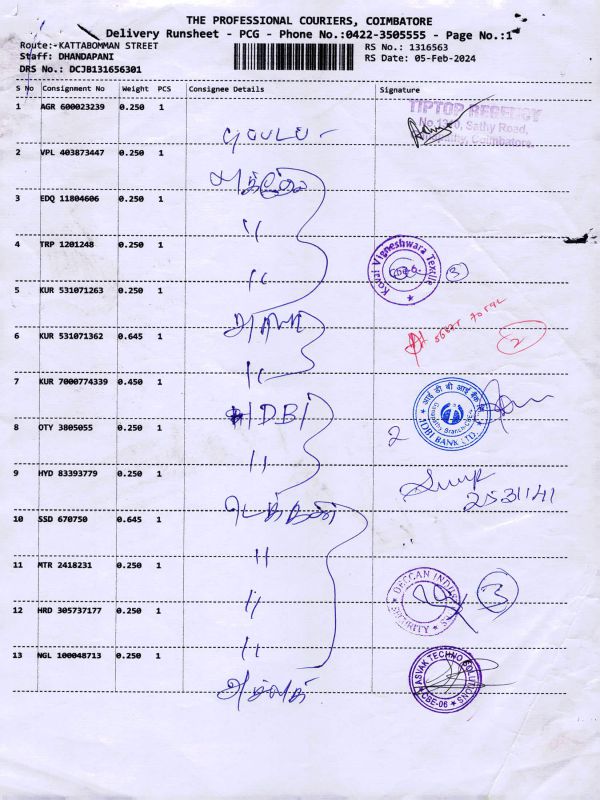 THE PROFESSIONAL COURIERS, COIMBATORE
Delivery Runsheet - PCG - Phone No.:0422-3505555 - Page No.:1
Route:-KATTABOMMAN STREET
RS No.: 1316563
Staff: DHANDAPANI
RS Date: 05-Feb-2024
DRS No.: DCJB131656301
S No Consignment No Weight PCS Consignee Details Signature
1 AGR 600023239 0.250 1
TIPTOP REGENCY
Sathy Road,
Coimbatore.
2 VPL 403873447 0.250 1
3 EDQ 11804606 0.250 1
"
4 TRP 1201248 0.250 1
Vigneshwara Textile
3
"
5 KUR 531071263 0.250 1
6 KUR 531071362 0.645 1
2
"
7 KUR 7000774339 0.450 1
आई डी बी आई बैंक
IDBI BANK LTD.
IDBI
2
8 OTY 3805055 0.250 1
"
9 HYD 83393779 0.250 1
2531141
10 SSD 670750 0.645 1
"
11 MTR 2418231 0.250 1
DECCAN INDUS
SECURITY
3
"
12 HRD 305737177 0.250 1
"
13 NGL 100048713 0.250 1
ASVAK TECHNO SOLUTIONS
CBE-06